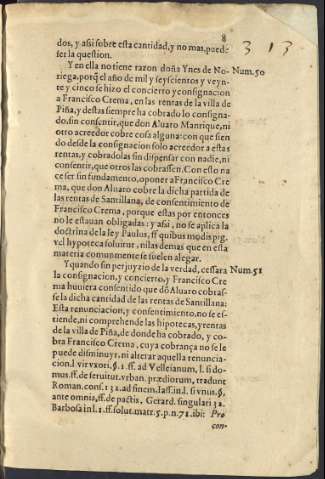 8
313
dos, y assi sobre esta cantidad, y no mas, puede
ser la question.
Y en ella no tiene razon doña Ynes de No- Num. 50
riega, porq̃ el año de mil y seyscientos y veyn
te y cinco se hizo el concierto y consignacion
a Francisco Crema, en las rentas de la villa de
Piña, y destas siempre ha cobrado lo consigna-
do, sin consentir, que don Aluaro Manrique, ni
otro acreedor cobre cosa alguna: con que sien
do desde la consignacion solo acreedor a estas
rentas, y cobradolas sin dispensar con nadie, ni
consentir, que otros las cobrassen. Con esto na
ce ser sin fundamento, oponer a Francisco Cre
ma, que don Aluaro cobre la dicha partida de
las rentas de Santillana, de consentimiento de
Francisco Crema, porque estas por entonces
no le estauan obligadas: y assi, no se aplica la
doctrina de la ley Paulus, ff. quibus modis pig.
vel hypoteca soluitur, ni las demas que en esta
materia comunmente se suelen alegar.
Y quando sin perjuyzio de la verdad, cessara Num. 51
la consignacion, y concierto, y Francisco Cre
ma huuiera consentido que dõ Aluaro cobras-
se la dicha cantidad de las rentas de Santillana:
Esta renunciacion, y consentimiento, no se es-
tiende, ni comprehende las hipotecas, y rentas
de la villa de Piña, de donde ha cobrado, y co-
bra Francisco Crema, cuya cobrança no se le
puede disminuyr, ni alterar aquella renuncia-
cion. l. vir vxori. §. 1. ff. ad Velleianum, l. si do-
mus. ff. de seruitut. vrban. prædiorum, tradunt
Roman. cons. 132. ad finem. Iass. in l. si vnus. §.
ante omnia, ff. de pactis. Gerard. singulari 32.
Barbosa in l. 1. ff. solut. matr. 5. p. n. 71. ibi: Pro
con-